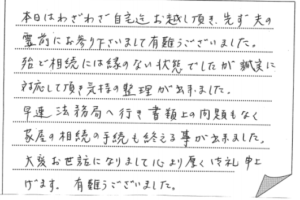 本日はわざわざ自宅迄お越し頂き、先ず夫の
霊前にお参り下さいまして有難うございました。
殆ど相続には縁のない状態でしたが誠実に
対応して頂き気持の整理が出来ました。
早速法務局へ行き書類上の問題もなく
家屋の相続の手続も終える事が出来ました。
大変お世話になりまして心より厚く御礼申上
げます。有難うございました。